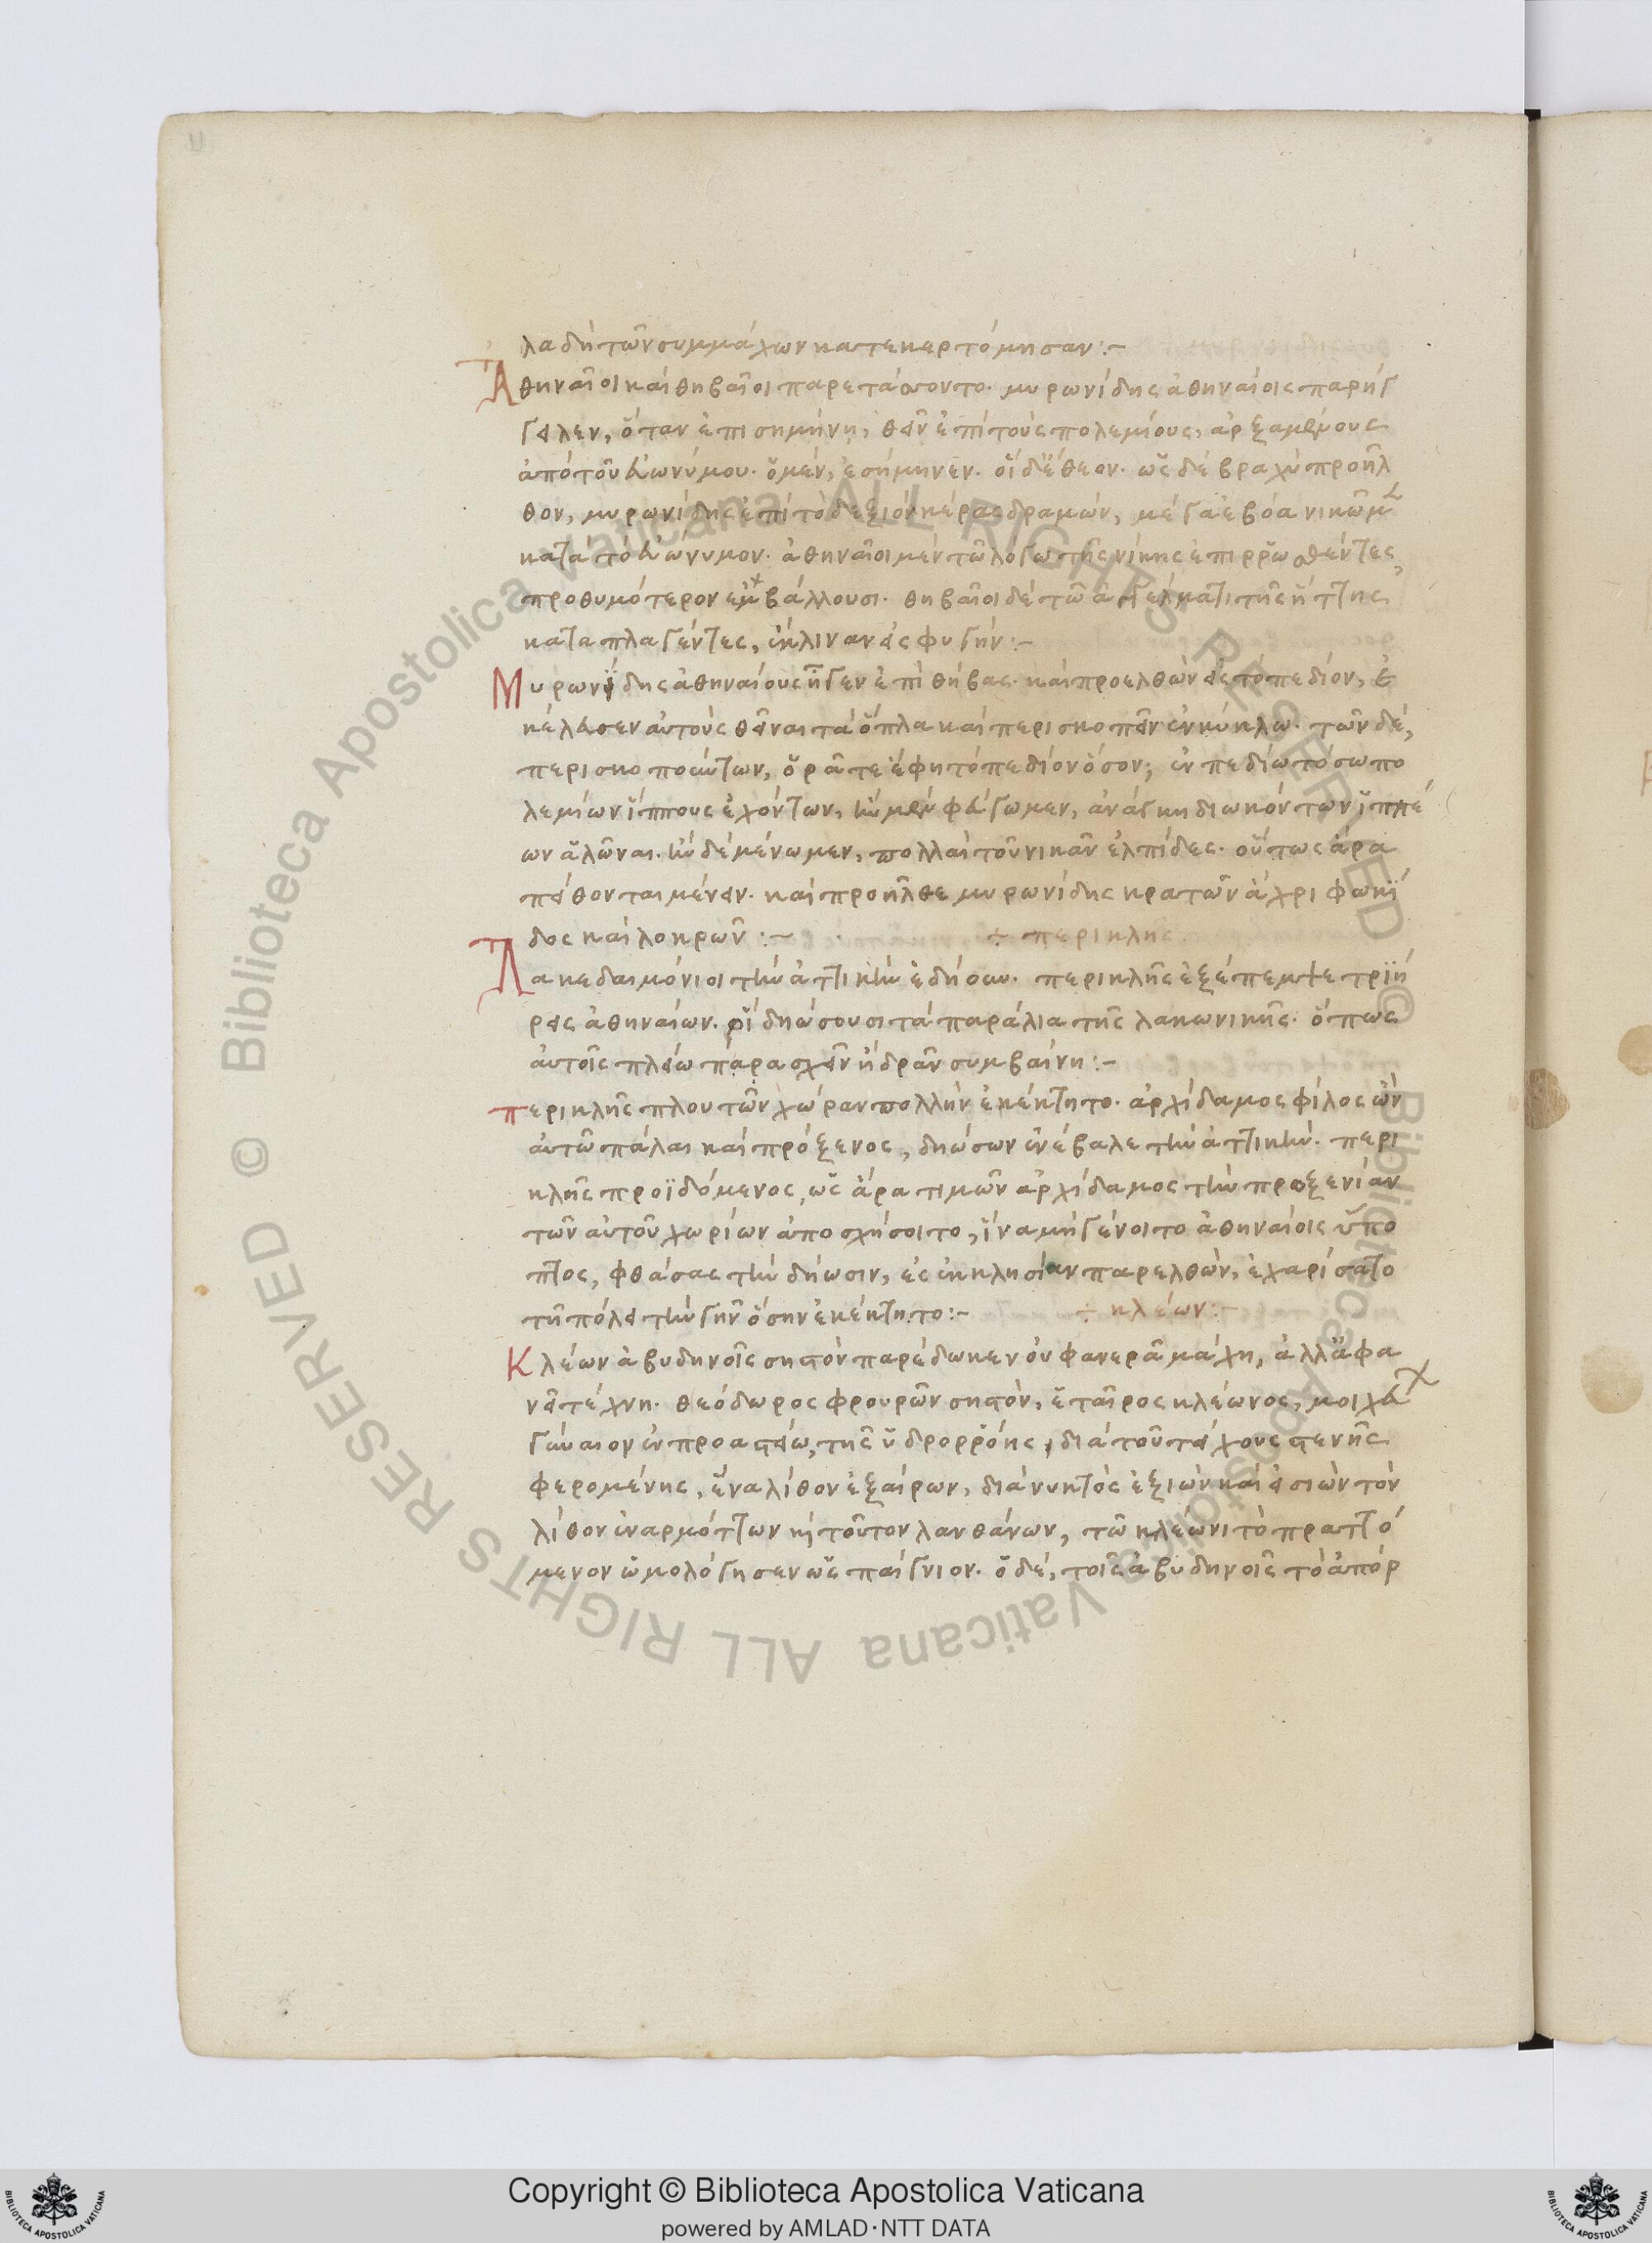 λα δὴ τῶν συμμάχων κατεκερτόμησαν :~
Ἀθηναῖοι καὶ θηβαῖοι παρετάσσοντο· μυρωνίδης ἀθηναίοις παρήγ
γειλεν, ὅταν ἐπισημήνη, θεῖν ἐπὶ τοὺς πολεμίους, ἀρξαμένους
ἀπὸ τοῦ εὐωνύμου. ὁ μὲν, ἐσήμηνεν. οἱ δὲ ἔθεον. ὡς δὲ βραχὺ προῆλ
θον, μυρωνίδης ἐπὶ τὸ δεξιὸν κέρας δραμὼν, μέγα ἐβόα νικῶμεν
κατὰ τὸ εὐώνυμον. ἀθηναῖοι μὲν τῶ λόγω τῆς νίκης ἐπιρρωσθέντες,
προθυμότερον ἐμβάλλουσι. θηβαῖοι δὲ τῶ ἀγγέλματι τῆς ἥττης
καταπλαγέντες, ἔκλιναν εἰς φυγήν :~
Μυρωνίδης ἀθηναίους ἦγεν ἐπὶ θήβας. καὶ προελθὼν εἰς τὸ πεδίον, ἐ
κέλευσεν αὐτοὺς θεῖναι τὰ ὅπλα καὶ περισκοπεῖν ἐν κύκλω. τῶν δὲ,
περισκοπούντων, ὁρᾶτε ἔφη τὸ πεδίον ὅσον; ἐν πεδίω τόσω πο
λεμίων ἵππους ἐχόντων, ἢν μὲν φεύγωμεν, ἀνάγκη διωκόντων ἱππέ
ων ἁλῶναι. ἢν δὲ μένωμεν, πολλαὶ τοῦ νικᾶν ἐλπίδες. οὕτως ἄρα
πείθονται μένειν. καὶ προῆλθε μυρωνίδης κρατῶν ἄχρι φωκί
δος καὶ λοκρῶν :~ ÷ περικλῆς
Λακεδαιμόνιοι τὴν ἀττικὴν ἐδήουν. περικλῆς ἐξέπεμψε τριή
ρεις ἀθηναίων. οἳ δηώσουσι τὰ παράλια τῆς λακωνικῆς. ὅπως
αὐτοῖς πλείω παρασχεῖν ἢ δρᾶν συμβαίνη :~
Περικλῆς πλουτῶν χώραν πολλὴν ἐκέκτητο. ἀρχίδαμος φίλος ὢν
αὐτῶ πάλαι καὶ πρόξενος, δηώσων ἐνέβαλε τὴν ἀττικήν. περι
κλῆς προϊδόμενος, ὡς ἄρα τιμῶν ἀρχίδαμος τὴν προξενίαν
τῶν αὐτοῦ χωρίων ἀποσχήσοιτο, ἵνα μὴ γένοιτο ἀθηναίοις ὕπο
πτος, φθάσας τὴν δήωσιν, ἐς ἐκκλησίαν παρελθὼν, ἐχαρίσατο
τῆ πόλει τὴν γῆν ὅσην ἐκέκτητο :~ ÷ κλέων :~
Κλέων ἀβυδηνοῖς σηστὸν παρέδωκεν οὐ φανερᾶ μάχη, ἀλλ' ἀφα
νεῖ τέχνη. θεόδωρος φρουρῶν σηστὸν, ἑταῖρος κλέωνος, μοιχεύων
γύναιον ἐν προαστείω, τῆς ὑδρορρόης, διὰ τοῦ τείχους στενῆς
φερομένης, ἕνα λίθον ἐξαίρων, διὰ νυκτὸς ἐξιὼν καὶ εἰσιὼν τὸν
λίθον ἐναρμόττων καὶ τοῦτον λανθάνων, τῶ κλέωνι τὸ πραττό
μενον ὡμολόγησεν ὡς παίγνιον. ὁ δὲ, τοῖς ἀβυδηνοῖς τὸ ἀπόρ
Copyright © Biblioteca Apostolica Vaticana
powered by AMLAD·NTT DATA